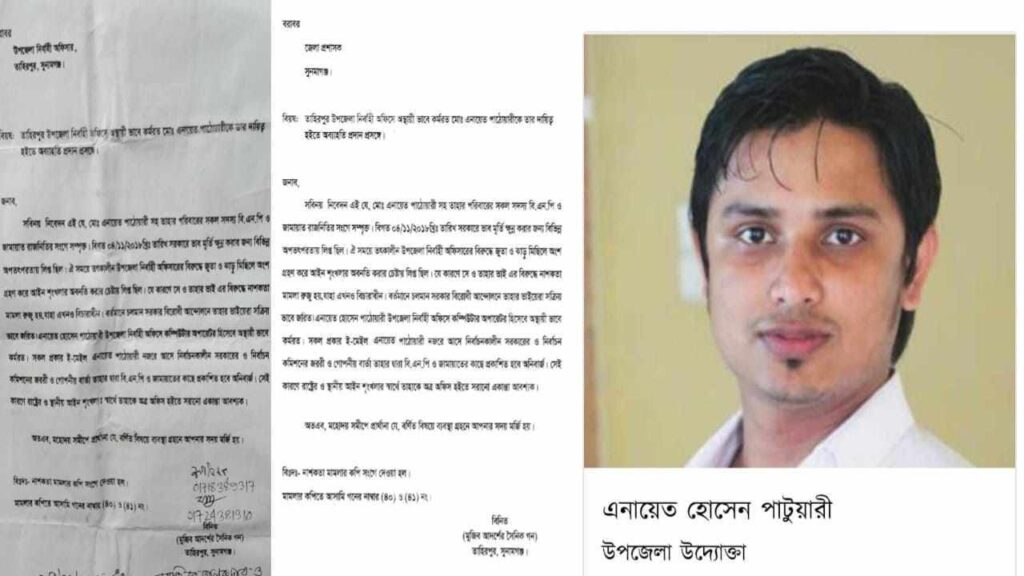 বরাবর
উপজেলা নির্বাহী অফিসার,
তাহিরপুর, সুনামগঞ্জ।
বিষয়: তাহিরপুর উপজেলা নির্বাহী অফিসে অস্থায়ী ভাবে কর্মরত মোঃ এনায়েত পাঠোয়ারীকে তার দায়িত্ব
হইতে অব্যাহতি প্রদান প্রসঙ্গে।
জনাব,
সবিনয় নিবেদন এই যে, মোঃ এনায়েত পাঠোয়ারী সহ তাহার পরিবারের সকল সদস্য বি.এন.পি ও
জামায়াত রাজনিতির সংগে সম্পৃক্ত। বিগত ০৪/১১/২০১৮খ্রিঃ তারিখ সরকারে ভাব মূর্তি ক্ষুন্ন করার জন্য বিভিন্ন
অপতৎপরতায় লিপ্ত ছিল। ঐ সময়ে তৎকালীন উপজেলা নির্বাহী অফিসারের বিরুদ্ধে জুতা ও ঝাড়ু মিছিলে অংশ
গ্রহণ করে আইন শৃংখলার অবনতি করার চেষ্টায় লিপ্ত ছিল। যে কারণে সে ও তাহার ভাই এর বিরুদ্ধে নাশকতা
মামলা রুজু হয়,যাহা এখনও বিচারাধীন। বর্তমানে চলমান সরকার বিরোধী আন্দোলনে তাহার ভাইয়েরা সক্রিয়
ভাবে জরিত। এনায়েত হোসেন পাঠোয়ারী উপজেলা নির্বাহী অফিসে কম্পিউটার অপারেটর হিসেবে অস্থায়ী ভাবে
কর্মরত। সকল প্রকার ই-মেইল এনায়েত পাঠোয়ারী নজরে আসে নির্বাচনকালীন সরকারের ও নির্বাচন
কমিশনের জরুরী ও গোপনীয় বার্তা তাহার দ্বারা বি.এন.পি ও জামায়াতের কাছে প্রকাশিত হবে অনিবার্জ। সেই
কারণে রাষ্ট্রের ও স্থানীয় আইন শৃংখলার স্বার্থে তাহাকে অত্র অফিস হইতে সরানো একান্ত আবশ্যক।
অতএব, মহোদয় সমীপে প্রার্থনা যে, বর্ণিত বিষয়ে ব্যবস্থা গ্রহনে আপনার সদয় মর্জি হয়।
বিদ্রঃ- নাশকতা মামলার কপি সংগে দেওয়া হল।
মামলার কপিতে আসামি গনের নাম্বার (৪০) ও (৪১) নং।
বিনিত
(মুজিব আদর্শের সৈনিক গন)
তাহিরপুর, সুনামগঞ্জ।
বরাবর
জেলা প্রশাসক
সুনামগঞ্জ।
বিষয়: তাহিরপুর উপজেলা নির্বাহী অফিসে অস্থায়ী ভাবে কর্মরত মোঃ এনায়েত পাঠোয়ারীকে তার দায়িত্ব
হইতে অব্যাহতি প্রদান প্রসঙ্গে।
জনাব,
সবিনয় নিবেদন এই যে, মোঃ এনায়েত পাঠোয়ারী সহ তাহার পরিবারের সকল সদস্য বি.এন.পি ও
জামায়াত রাজনিতির সংগে সম্পৃক্ত। বিগত ০৪/১১/২০১৮খ্রিঃ তারিখ সরকারে ভাব মূর্তি ক্ষুন্ন করার জন্য বিভিন্ন
অপতৎপরতায় লিপ্ত ছিল। ঐ সময়ে তৎকালীন উপজেলা নির্বাহী অফিসারের বিরুদ্ধে জুতা ও ঝাড়ু মিছিলে অংশ
গ্রহণ করে আইন শৃংখলার অবনতি করার চেষ্টায় লিপ্ত ছিল। যে কারণে সে ও তাহার ভাই এর বিরুদ্ধে নাশকতা
মামলা রুজু হয়,যাহা এখনও বিচারাধীন। বর্তমানে চলমান সরকার বিরোধী আন্দোলনে তাহার ভাইয়েরা সক্রিয়
ভাবে জরিত। এনায়েত হোসেন পাঠোয়ারী উপজেলা নির্বাহী অফিসে কম্পিউটার অপারেটর হিসেবে অস্থায়ী ভাবে
কর্মরত। সকল প্রকার ই-মেইল এনায়েত পাঠোয়ারী নজরে আসে নির্বাচনকালীন সরকারের ও নির্বাচন
কমিশনের জরুরী ও গোপনীয় বার্তা তাহার দ্বারা বি.এন.পি ও জামায়াতের কাছে প্রকাশিত হবে অনিবার্জ। সেই
কারণে রাষ্ট্রের ও স্থানীয় আইন শৃংখলার স্বার্থে তাহাকে অত্র অফিস হইতে সরানো একান্ত আবশ্যক।
অতএব, মহোদয় সমীপে প্রার্থনা যে, বর্ণিত বিষয়ে ব্যবস্থা গ্রহনে আপনার সদয় মর্জি হয়।
বিদ্রঃ- নাশকতা মামলার কপি সংগে দেওয়া হল।
মামলার কপিতে আসামি গনের নাম্বার (৪০) ও (৪১) নং।
বিনিত
(মুজিব আদর্শের সৈনিক গন)
তাহিরপুর, সুনামগঞ্জ।
এনায়েত হোসেন পাটুয়ারী
উপজেলা উদ্যোক্তা